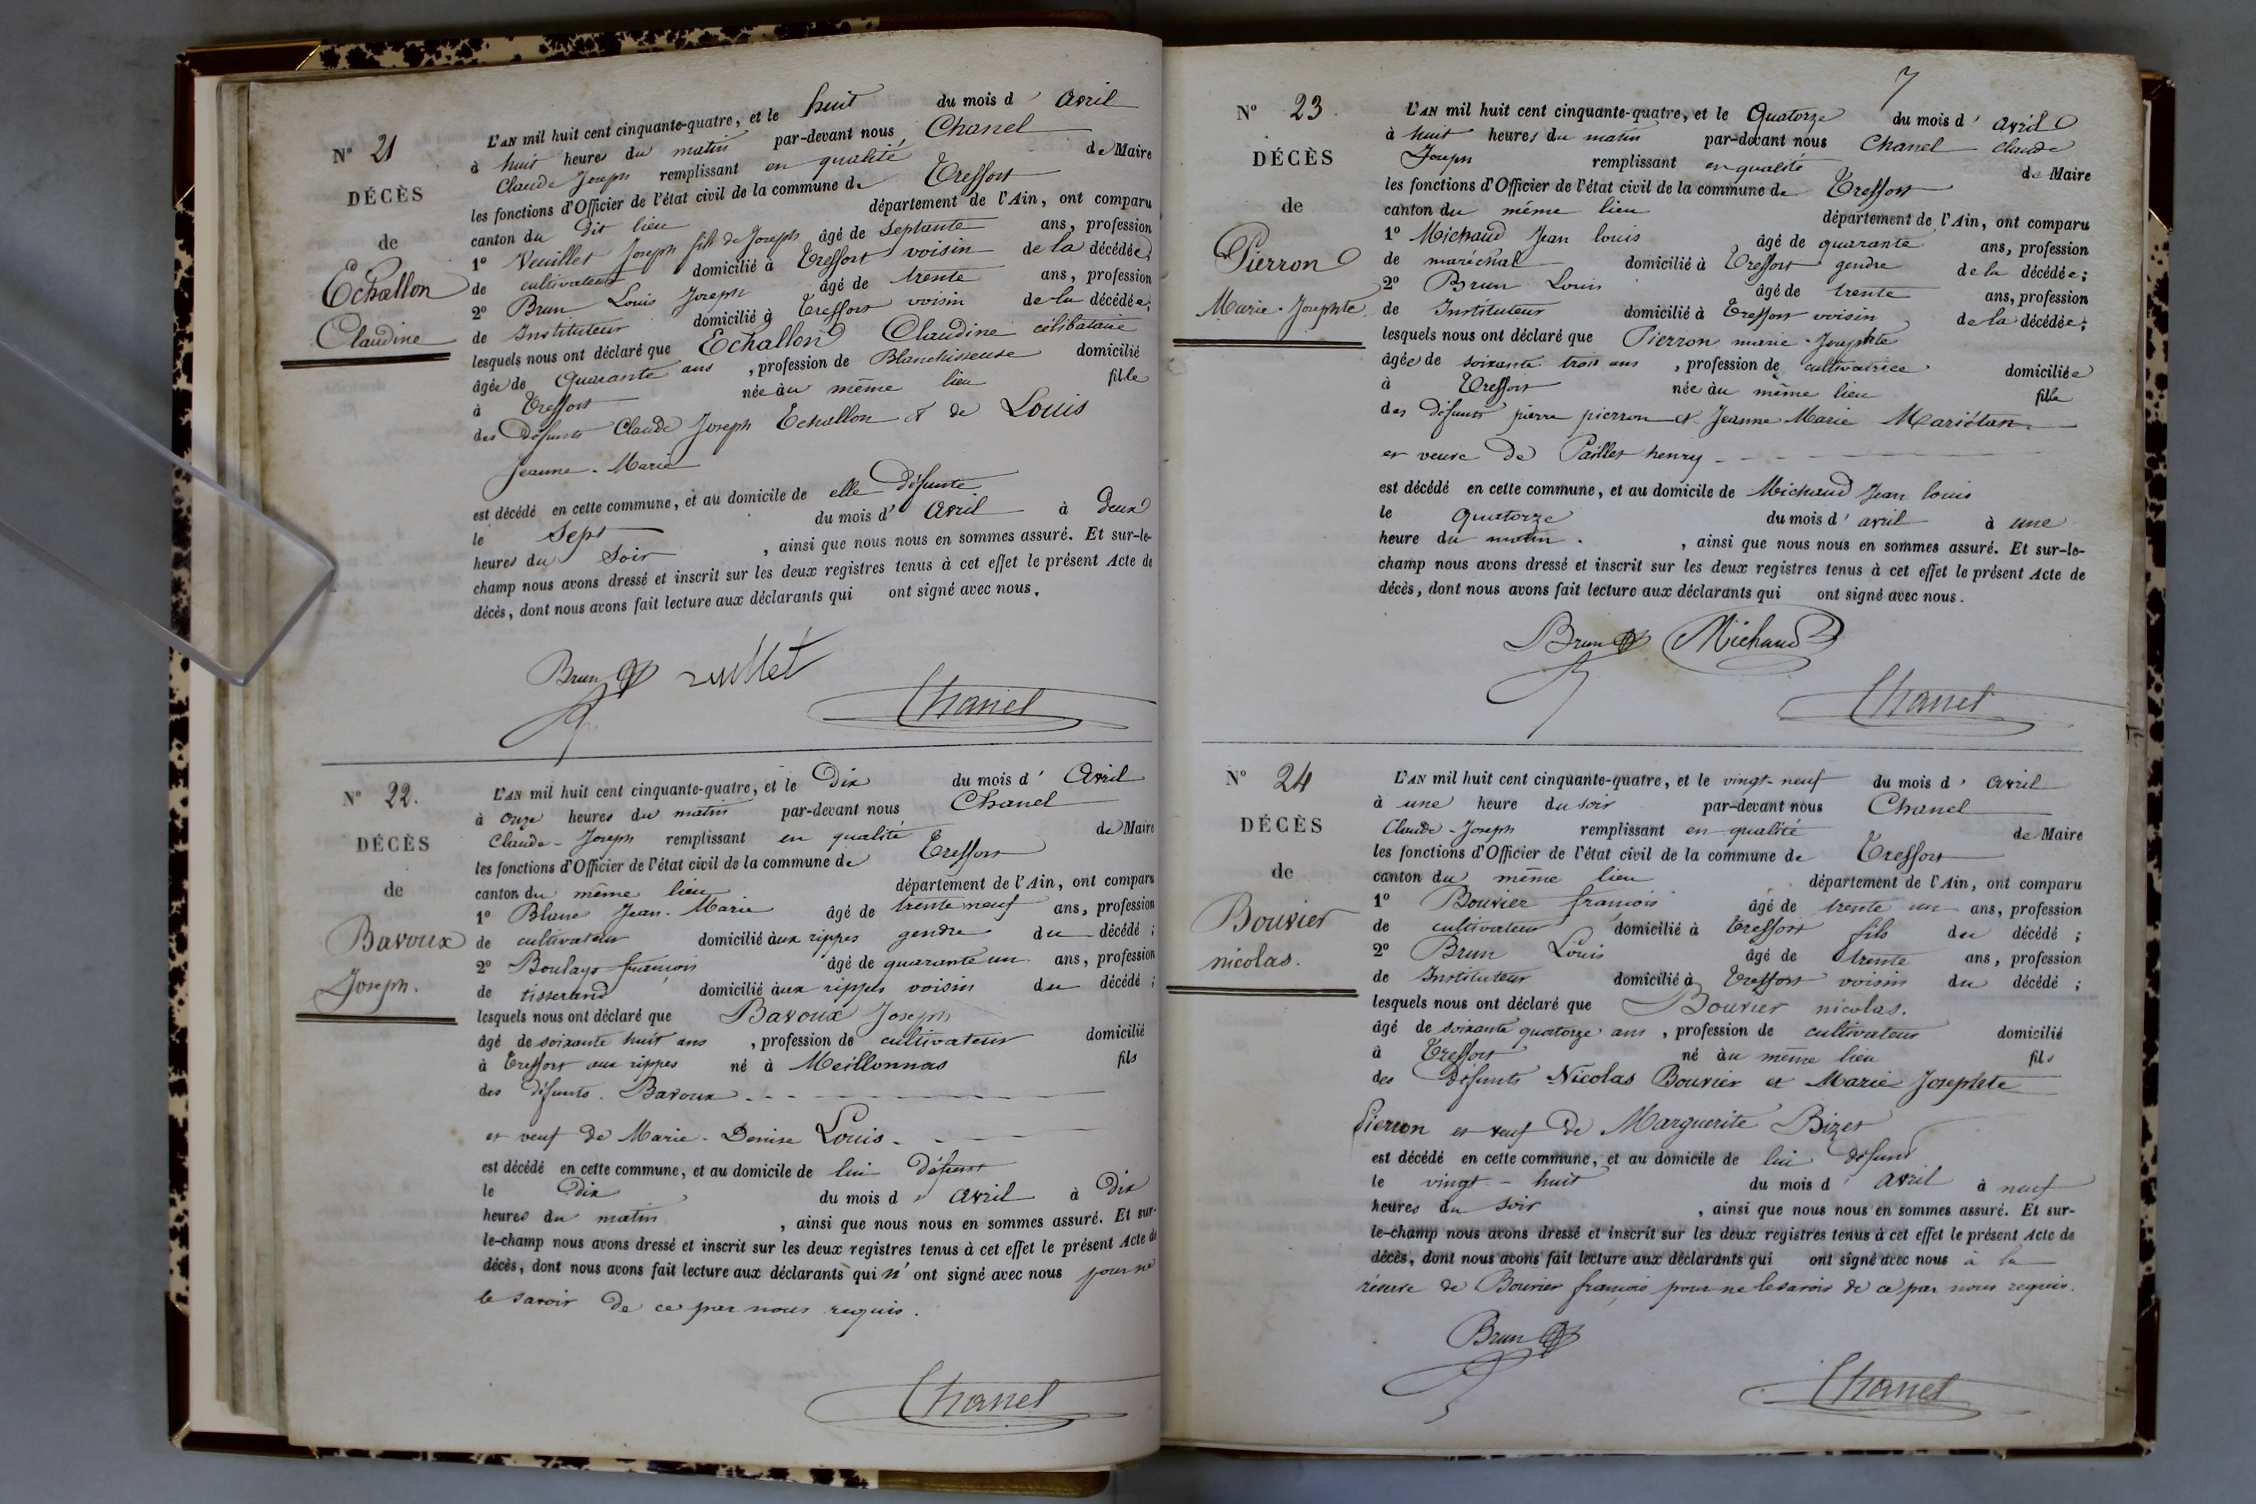 N° 21
DÉCÈS
de
Echallon
Claudine
L'AN mil huit cent cinquante-quatre, et le huit du mois d' Avril
à huit heures du matin par-devant nous Chanel
Claude Joseph remplissant en qualité de Maire
les fonctions d'Officier de l'état civil de la commune de Treffort
canton du dit lieu département de l'Ain, ont comparu
1° Veuillet Joseph fils de Joseph âgé de septante ans, profession
de cultivateur domicilié à Treffort voisin de la décédée;
2° Brun Louis Joseph âgé de trente ans, profession
de Instituteur domicilié à Treffort voisin de la décédée;
lesquels nous ont déclaré que Echallon Claudine célibataire
âgée de Quarante ans, profession de Blanchisseuse domicilié
à Treffort née au même lieu fille
des Défunts Claude Joseph Echallon & de Louis
Jeanne-Marie
est décédé en cette commune, et au domicile de elle Défunte
le sept du mois d' Avril à Deux
heures du Soir, ainsi que nous nous en sommes assuré. Et sur-le-
champ nous avons dressé et inscrit sur les deux registres tenus à cet effet le présent Acte de
décès, dont nous avons fait lecture aux déclarants qui ont signé avec nous.
Brun vuillet
Chanel
N° 22.
DÉCÈS
de
Bavoux
Joseph.
L'AN mil huit cent cinquante-quatre, et le Dix du mois d' Avril
à onze heures du matin par-devant nous Chanel
Claude-Joseph remplissant en qualité de Maire
les fonctions d'Officier de l'état civil de la commune de Treffort
canton du même lieu département de l'Ain, ont comparu
1° Blanc Jean-Marie âgé de trente neuf ans, profession
de cultivateur domicilié aux rippes gendre du décédé;
2° françois âgé de quarante un ans, profession
de tisserand domicilié aux rippes voisin du décédé;
lesquels nous ont déclaré que Bavoux Joseph
âgé de soixante huit ans, profession de cultivateur domicilié
à Treffort aux rippes né à Meillonnas fils
des défunts. Bavoux
et veuf de Marie-Denise Louis
est décédé en cette commune, et au domicile de lui Défunt
le Dix du mois d' Avril à Dix
heures du matin, ainsi que nous nous en sommes assuré. Et sur-
le-champ nous avons dressé et inscrit sur les deux registres tenus à cet effet le présent Acte de
décès, dont nous avons fait lecture aux déclarants qui n'ont signé avec nous pour ne
le savoir de ce par nous requis.
Chanel
7
N° 23.
DÉCÈS
de
Pierron
Marie-Josephte
L'AN mil huit cent cinquante-quatre, et le Quatorze du mois d' Avril
à huit heures du matin par-devant nous Chanel Claude
Joseph remplissant en qualité de Maire
les fonctions d'Officier de l'état civil de la commune de Treffort
canton du même lieu département de l'Ain, ont comparu
1° Michaud Jean louis âgé de quarante ans, profession
de maréchal domicilié à Treffort gendre de la décédée;
2° Brun Louis âgé de trente ans, profession
de Instituteur domicilié à Treffort voisin de la décédée;
lesquels nous ont déclaré que Pierron marie-Josephte
âgée de soixante trois ans, profession de cultivatrice domiciliée
à Treffort née au même lieu fille
des défunts pierre pierron & Jeanne Marie Mariétan
et veuve de Paillet henry
est décédé en cette commune, et au domicile de Michaud Jean louis
le quatorze du mois d' avril à une
heure du matin., ainsi que nous nous en sommes assuré. Et sur-le-
champ nous avons dressé et inscrit sur les deux registres tenus à cet effet le présent Acte de
décès, dont nous avons fait lecture aux déclarants qui ont signé avec nous.
Brun Michaud
Chanel
N° 24
DÉCÈS
de
Bouvier
nicolas.
L'AN mil huit cent cinquante-quatre, et le vingt-neuf du mois d' Avril
à une heure du soir par-devant nous Chanel
Claude-Joseph remplissant en qualité de Maire
les fonctions d'Officier de l'état civil de la commune de Treffort
canton du même lieu département de l'Ain, ont comparu
1° Bouvier françois âgé de trente un ans, profession
de cultivateur domicilié à Treffort fils du décédé;
2° Brun Louis âgé de trente ans, profession
de Instituteur domicilié à Treffort voisin du décédé;
lesquels nous ont déclaré que Bouvier nicolas.
âgé de soixante quatorze ans, profession de cultivateur domicilié
à Treffort né au même lieu fils
des défunts Nicolas Bouvier et Marie Josephte
Pierron et veuf de Marguerite Bizet
est décédé en cette commune, et au domicile de lui défunt
le vingt-huit du mois d' Avril à neuf
heures du soir, ainsi que nous nous en sommes assuré. Et sur-
le-champ nous avons dressé et inscrit sur les deux registres tenus à cet effet le présent Acte de
décès, dont nous avons fait lecture aux déclarants qui ont signé avec nous à la
réserve de Bouvier françois pour ne le savoir de ce par nous requis.
Brun
Chanel